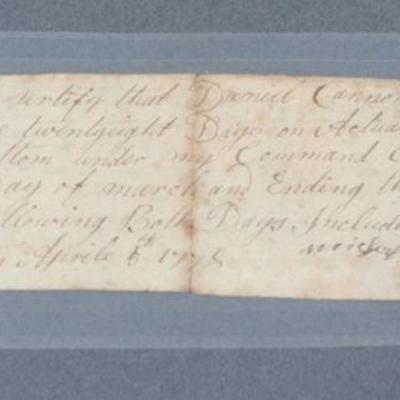 ertify that Daniel Cannon
twentyeight Days on Actua
ttom under my Command
ay of march and Ending th
llowing Both Days Includ
Aprile 1778